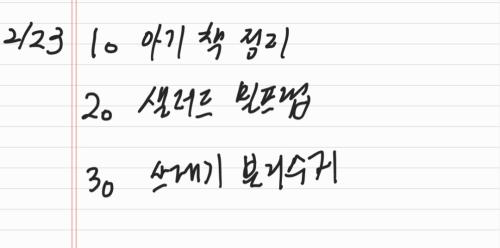 2/23 1. 아기 책 정리
2. 샐러드 밀프렙
3. 쓰레기 분리수거